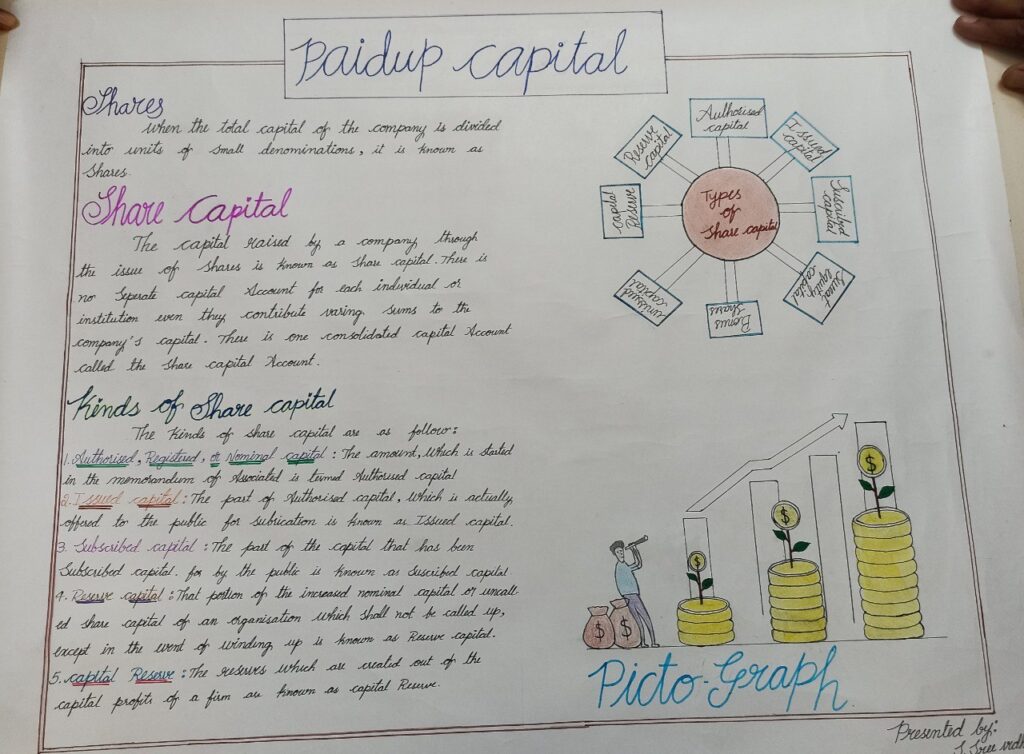 Paidup Capital
Shares
When the total capital of the company is divided
into units of small denominations, it is known as
Shares.
Share Capital
The capital raised by a company through
the issue of shares is known as share capital. There is
no Seperate capital Account for each individual or
institution even they contribute varing sums to the
company's capital. There is one consolidated capital Account
called the share capital Account.
Kinds of Share capital
The Kinds of share capital are as follow:
1. Authorised, Registered, or Nominal capital: The amount, which is started
in the memorandum of Associated is termed Authorised capital
2. Issued capital: The part of Authorised capital, which is actually
offered to the public for subrication is known as Issued capital.
3. Subscribed capital: The part of the capital that has been
Subscribed capital. for by the public is known as Suscribed capital
4. Reserve capital: That portion of the increased nominal capital or uncall
ed share capital of an organisation which shall not be called up,
except in the event of winding up is known as Reserve capital.
5. capital Reserve: The reserves which are created out of the
capital profits of a firm are known as capital Reserve.
Authorised
capital
Issued
capital
Suscribed
capital
equity
capital
Bonus
Shares
unissued
capital
Capital
Reserve
Reserve
capital
Types
of
Share capital
$
$
$
$ $
Picto-Graph
Presented by: